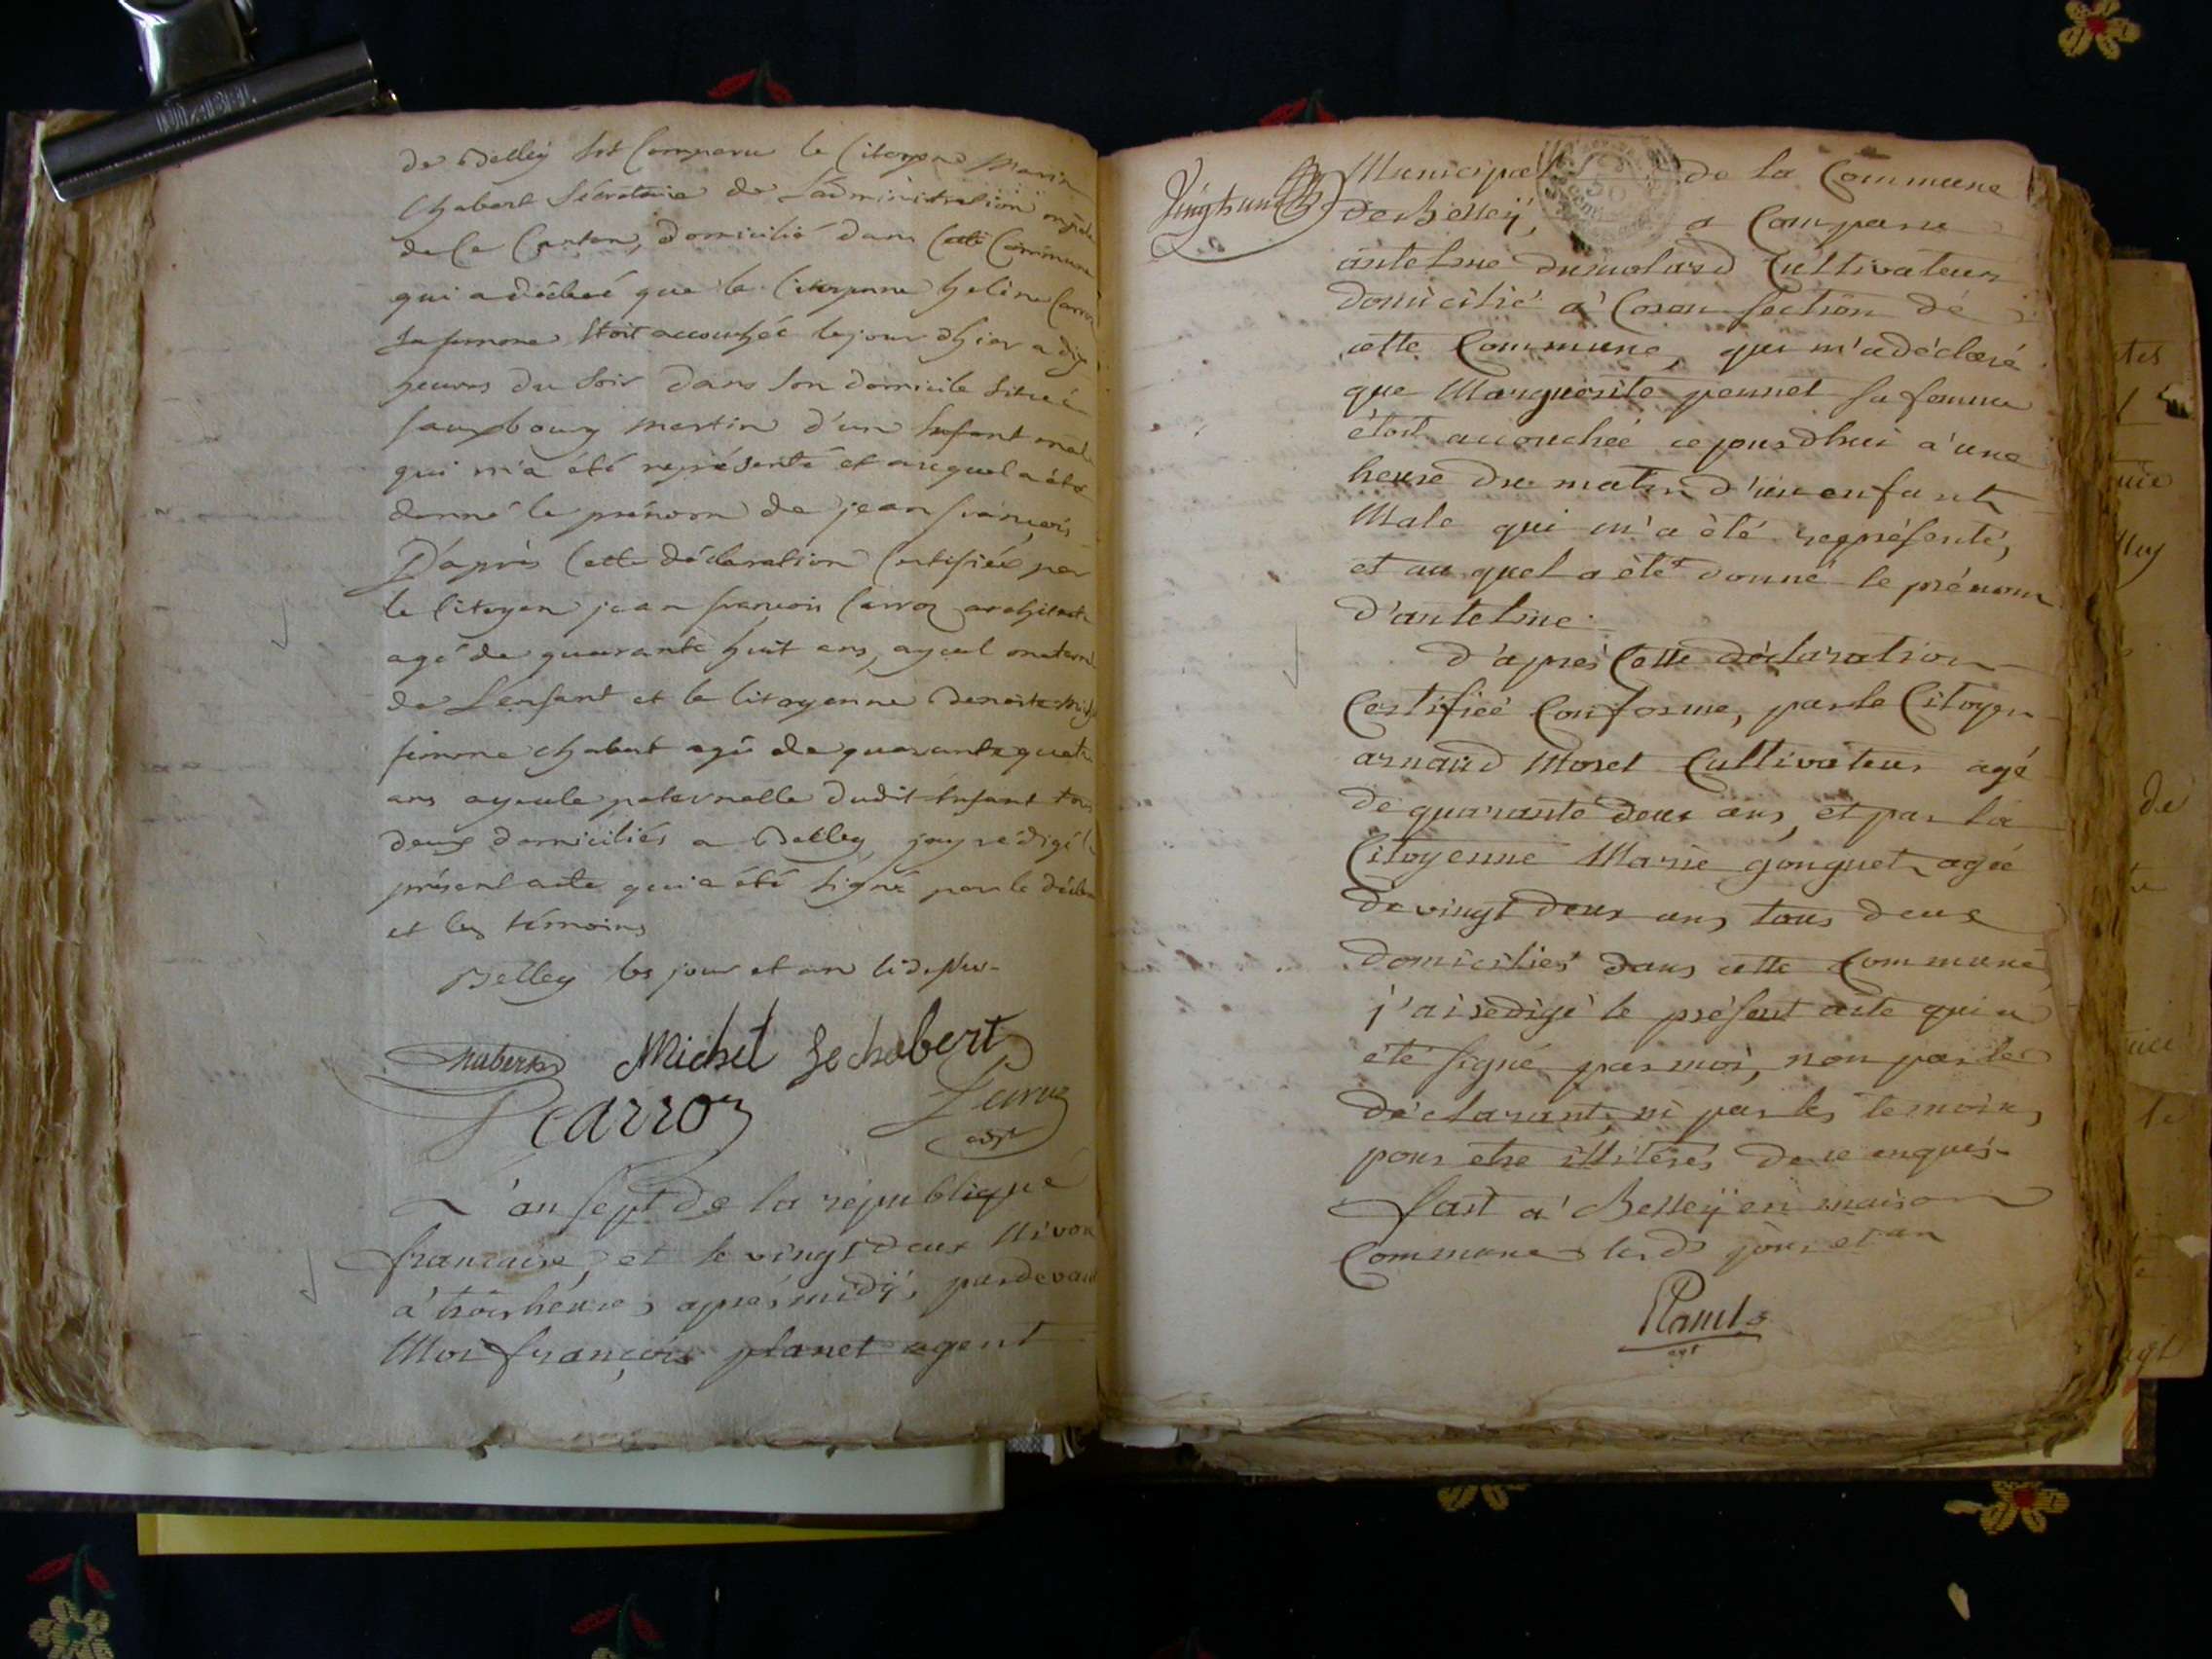 de Belley Est Comparu le Citoyen Marin
Chabert Sécrétaire de L'administration mple
de Ce Canton, domicilié dans Cette Commune
qui a déclaré que la Citoyenne helène Carroz
sa femme Etoit accouchée le jour dhier a dix
heures du Soir dans son domicile Situé
fauxbourg martin d'un Enfant male
qui m'a été représenté et auquel a été
donné le prénom de jean françois
D'après Cette déclaration Certifiée par
le Citoyen jean françois Carroz architecte
agé de quarante huit ans, ayeul maternel
de L'enfant et la Citoyenne Benoite Michel
femme chabert agé de quarante quatre
ans ayeule paternelle dudit Enfant tous
deux domiciliés a Belley jay rédigé le
présent acte qui a été Signé par le déclarant
et les témoins
Belley les jour et an Cidessus
Chabert Michel fe chabert
Carroz
L'an sept de la république
francaise, et le vingt deux Nivose
à trois héures aprés midÿ, pardevant
Moi françois planet agent
Vingt un
Municipal de la Commune
de Belleÿ, a Comparu
antelme dumolard Cultivateur
domicilié à Coron section de
cette Commune, qui m'a déclaré
que Marguerite pennet sa femme
étoit accouchée cejourdhui à une
heure du matin d'un enfant
Male qui m'a été représenté,
et au quel a été donné le prénom
d'antelme.
d'aprés Cette déclaration
Certifiée Conforme, par le Citoyen
arnaud Moret Cultivateur agé
de quarante deux ans, et par la
Citoyenne Marie gonguet agée
de vingt deux ans tous deux
domiciliés dans cette Commune
j'ai redigé le présent acte qui a
été signé par moi, non par le
déclarant, ni par les témoins,
pour etre illitérés de ce enquis.
fait a Belleÿ en maison
Commune lesd jour et an
Planet
agt